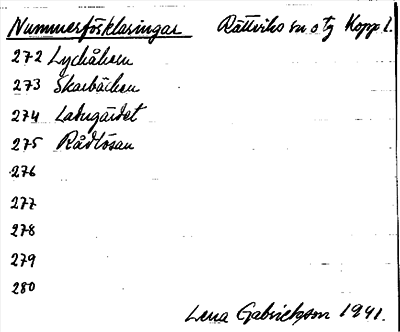 Nummerförklaringar Rättviks sn o tg Kopp. l.
272 Lychåhem
273 Skarbäcken
274 Ladugärdet
275 Rådlösan
276
277
278
279
280
Lena Gabrielsson 1941.